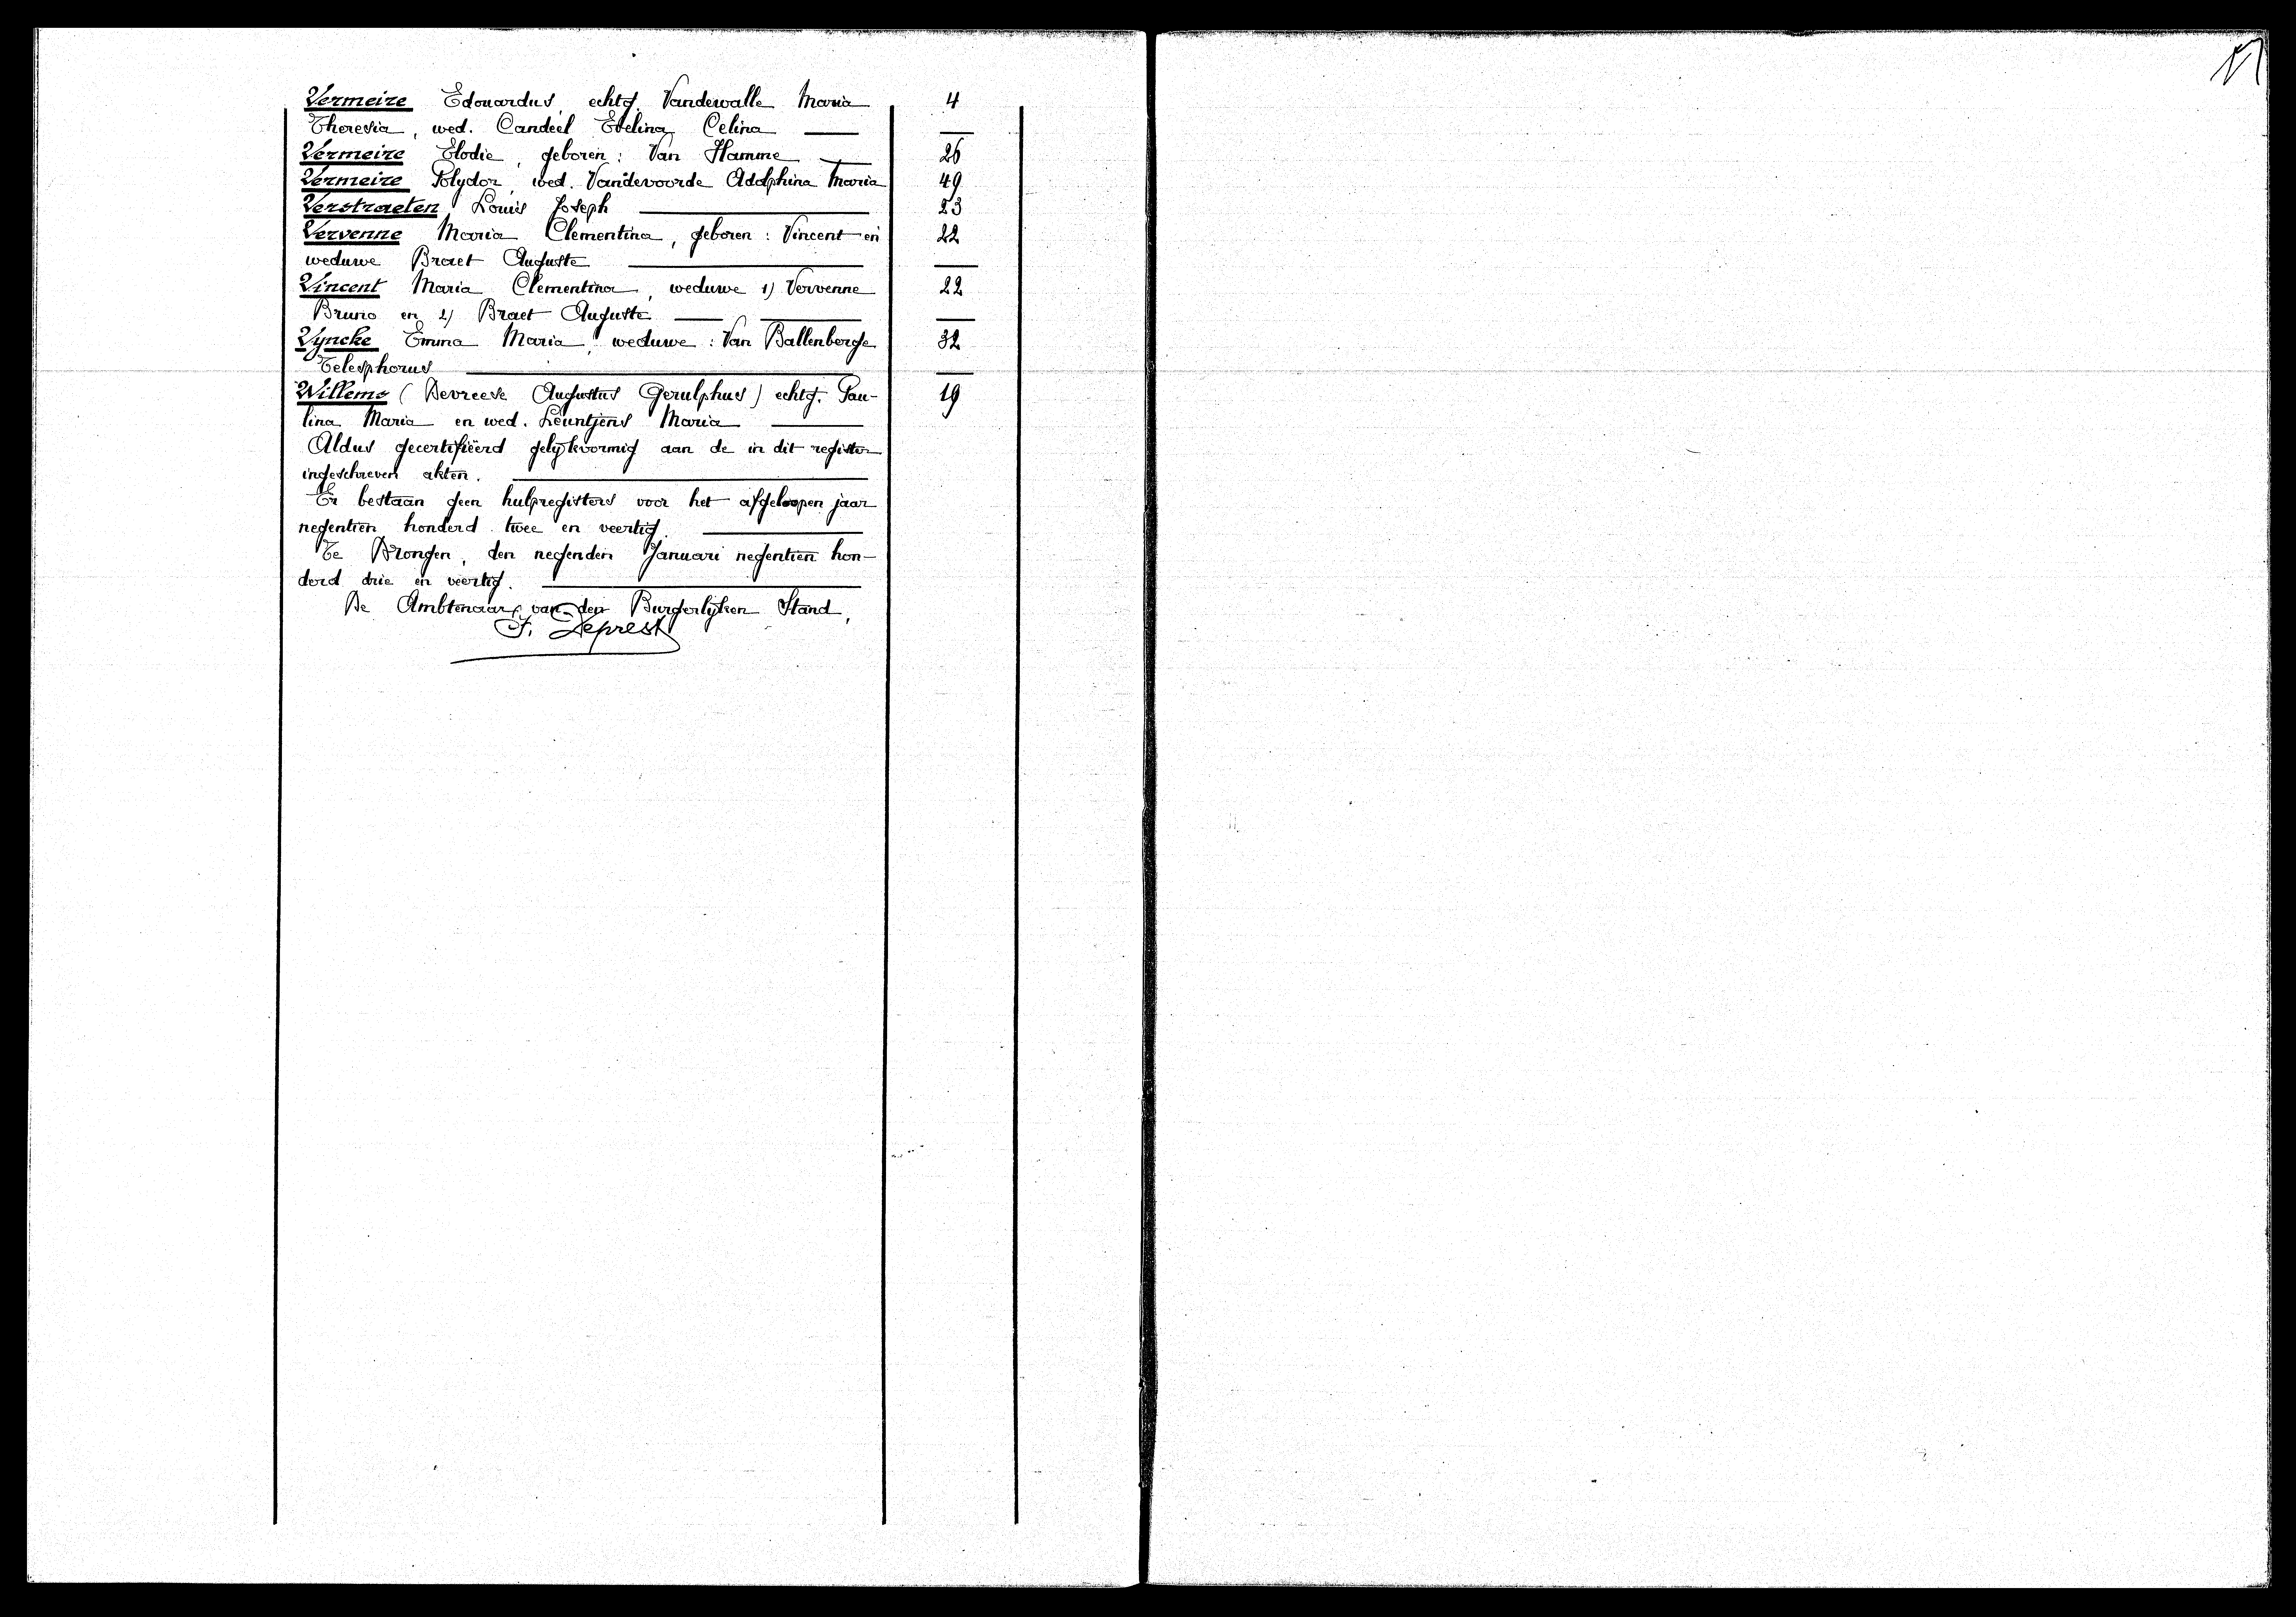 Vermeire Edouardus, echtg. Vandewalle Maria 4
Theresia, wed. Candeel Evelina Celina
Vermeire Elodie, geboren: Van Hamme 26
Vermeire Polydor, wed. Vandevoorde Adolphina Maria 49
Verstraeten Louis Joseph 23
Vervenne Maria Clementina, geboren: Vincent en 22
weduwe Braet Auguste
Vincent Maria Clementina, weduwe 1) Vervenne 22
Bruno en 2) Braet Auguste
Vyncke Emma Maria, weduwe: Van Ballenberge 32
Telesphorus
Willems (Devreese Augustus Gerulphus) echtg. Pau- 19
lina Maria en wed. Leuntjens Maria
Aldus gecertifiëerd gelijkvormig aan de in dit register
ingeschreven akten.
Er bestaan geen hulpregisters voor het afgeloopen jaar
negentien honderd twee en veertig.
Te Drongen, den negenden Januari negentien hon-
derd drie en veertig.
De Ambtenaar van den Burgerlijken Stand,
J. Deprest